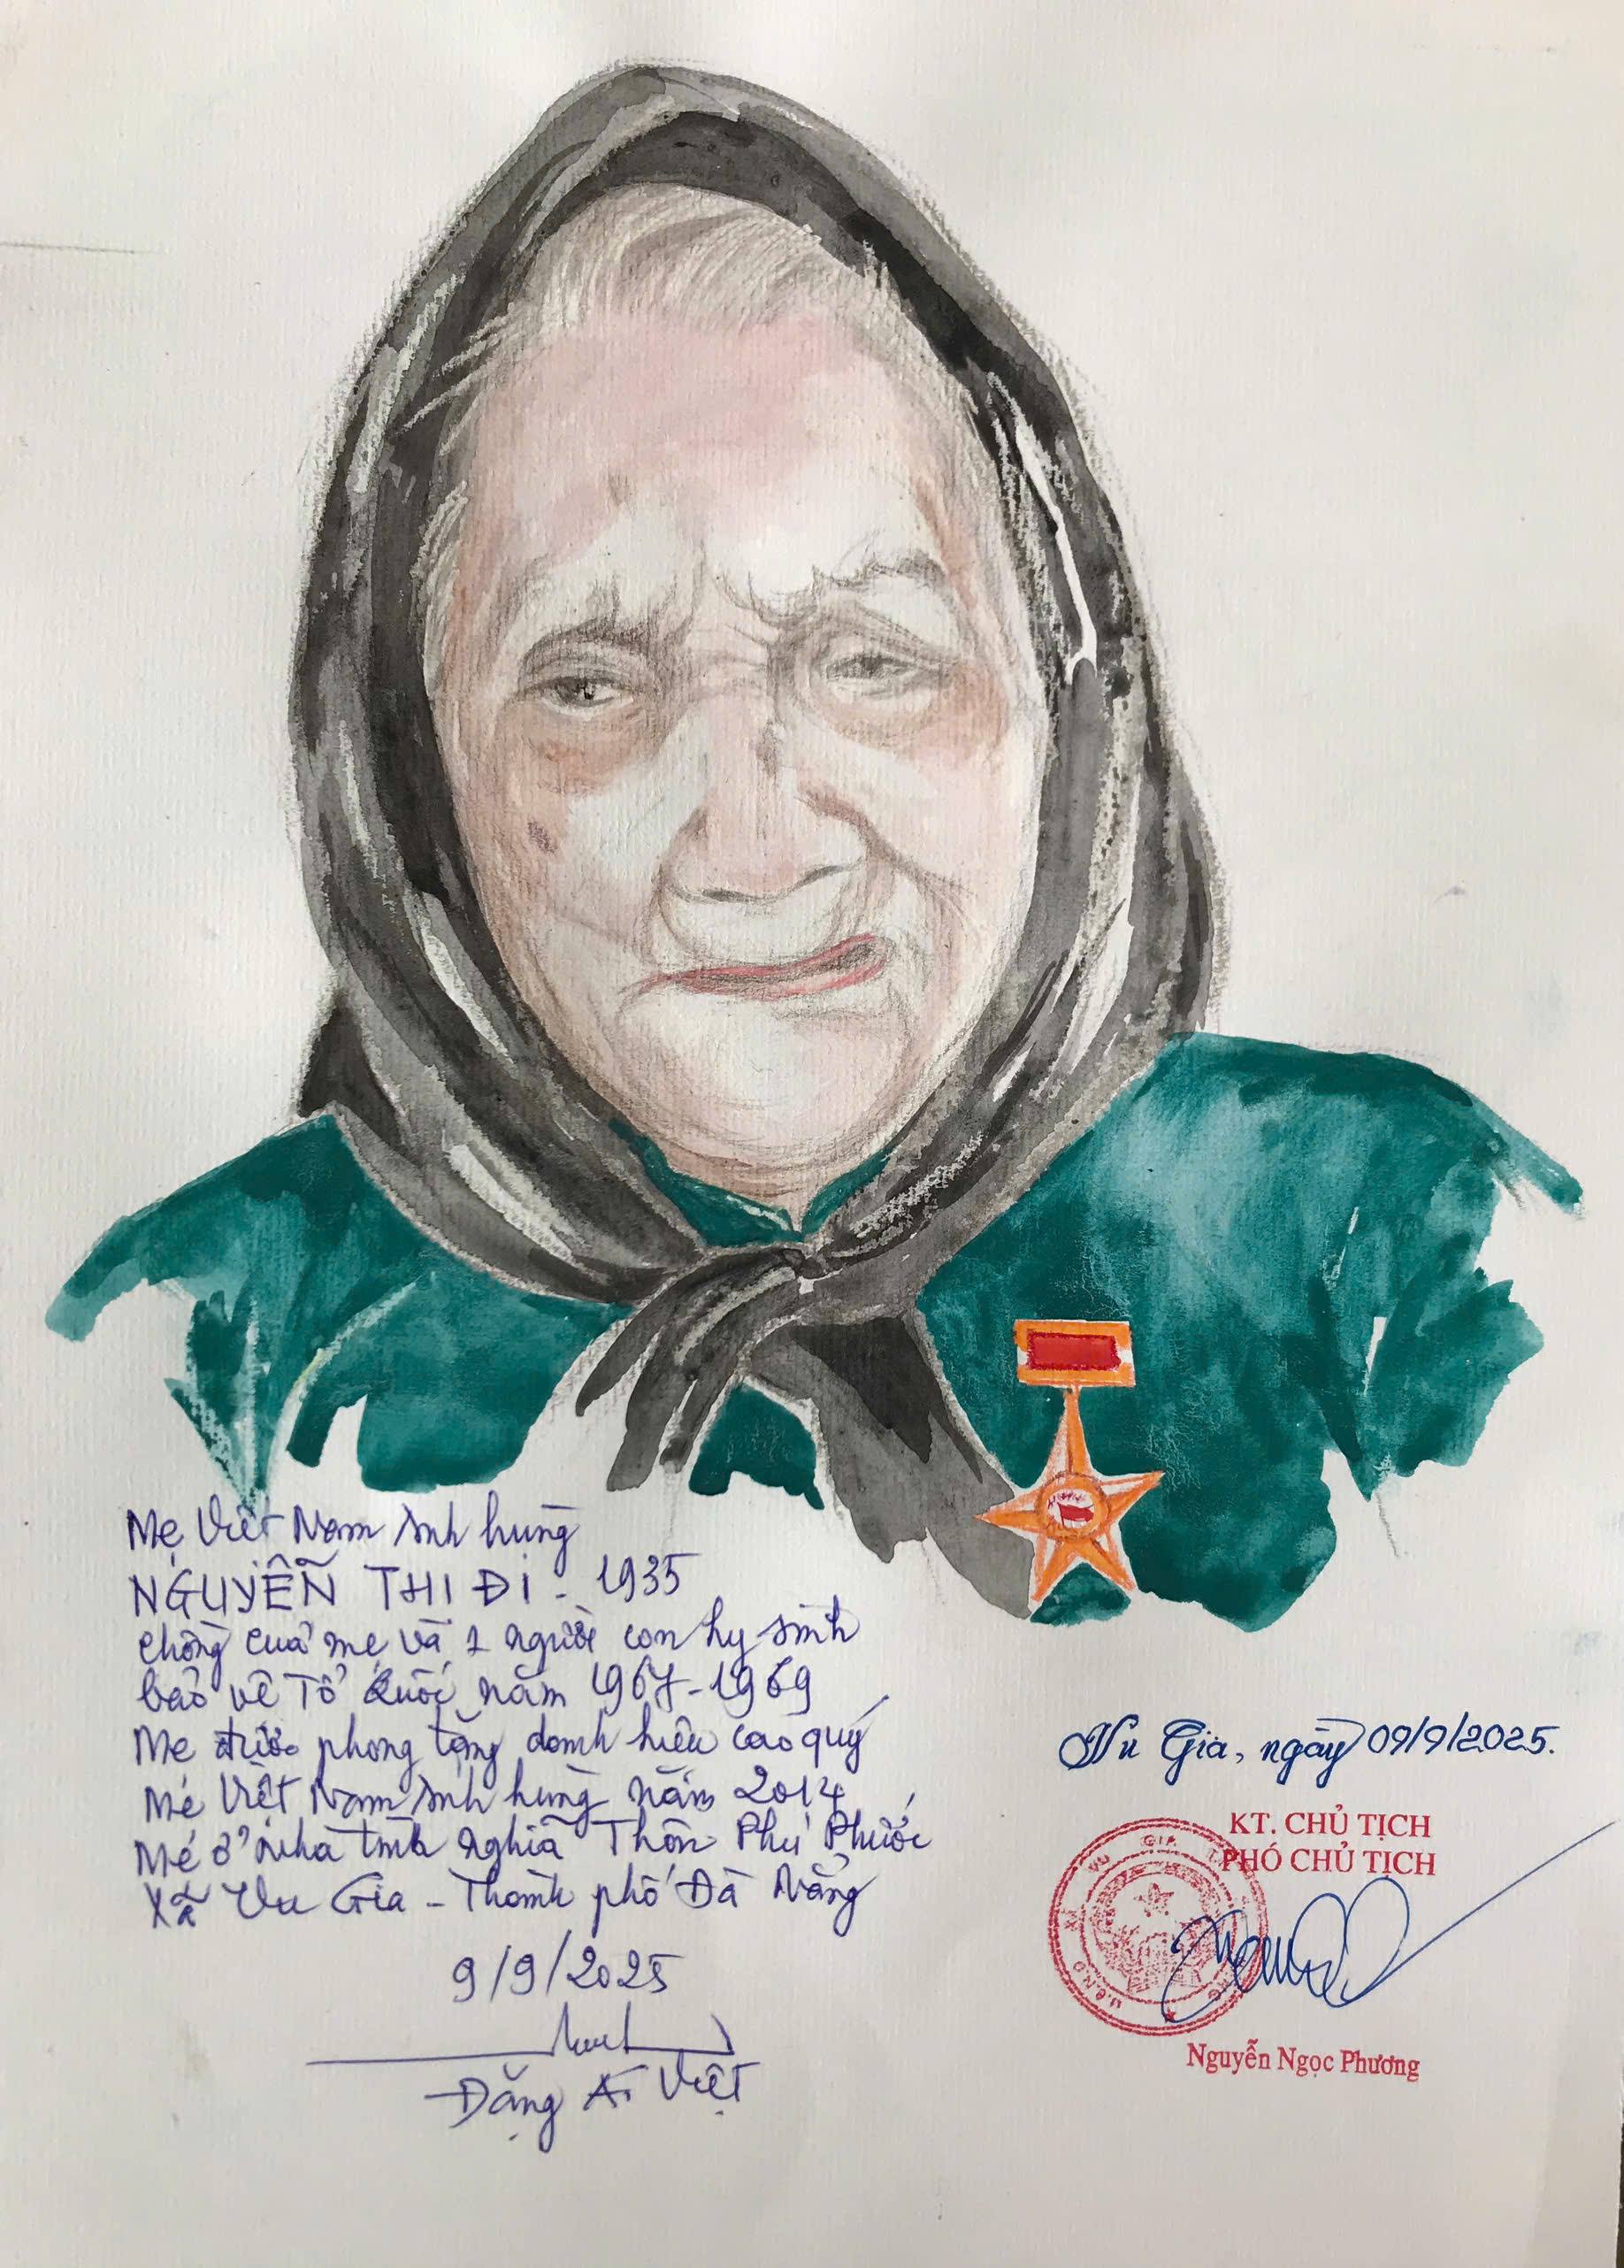 Mẹ Việt Nam Anh hùng
NGUYỄN THỊ ĐI - 1935
Chồng của mẹ và 1 người con hy sinh
bảo vệ Tổ Quốc năm 1967-1969
Mẹ được phong tặng danh hiệu cao quý
Mẹ Việt Nam Anh hùng năm 2014
Mẹ ở nhà tình nghĩa Thôn Phú Phước
Xã Vu Gia - Thành phố Đà Nẵng
9/9/2025
Đặng Ái Việt
Vu Gia, ngày 09/9/2025.
KT. CHỦ TỊCH
PHÓ CHỦ TỊCH
U.B.N.D
VU GIA
Nguyễn Ngọc Phương